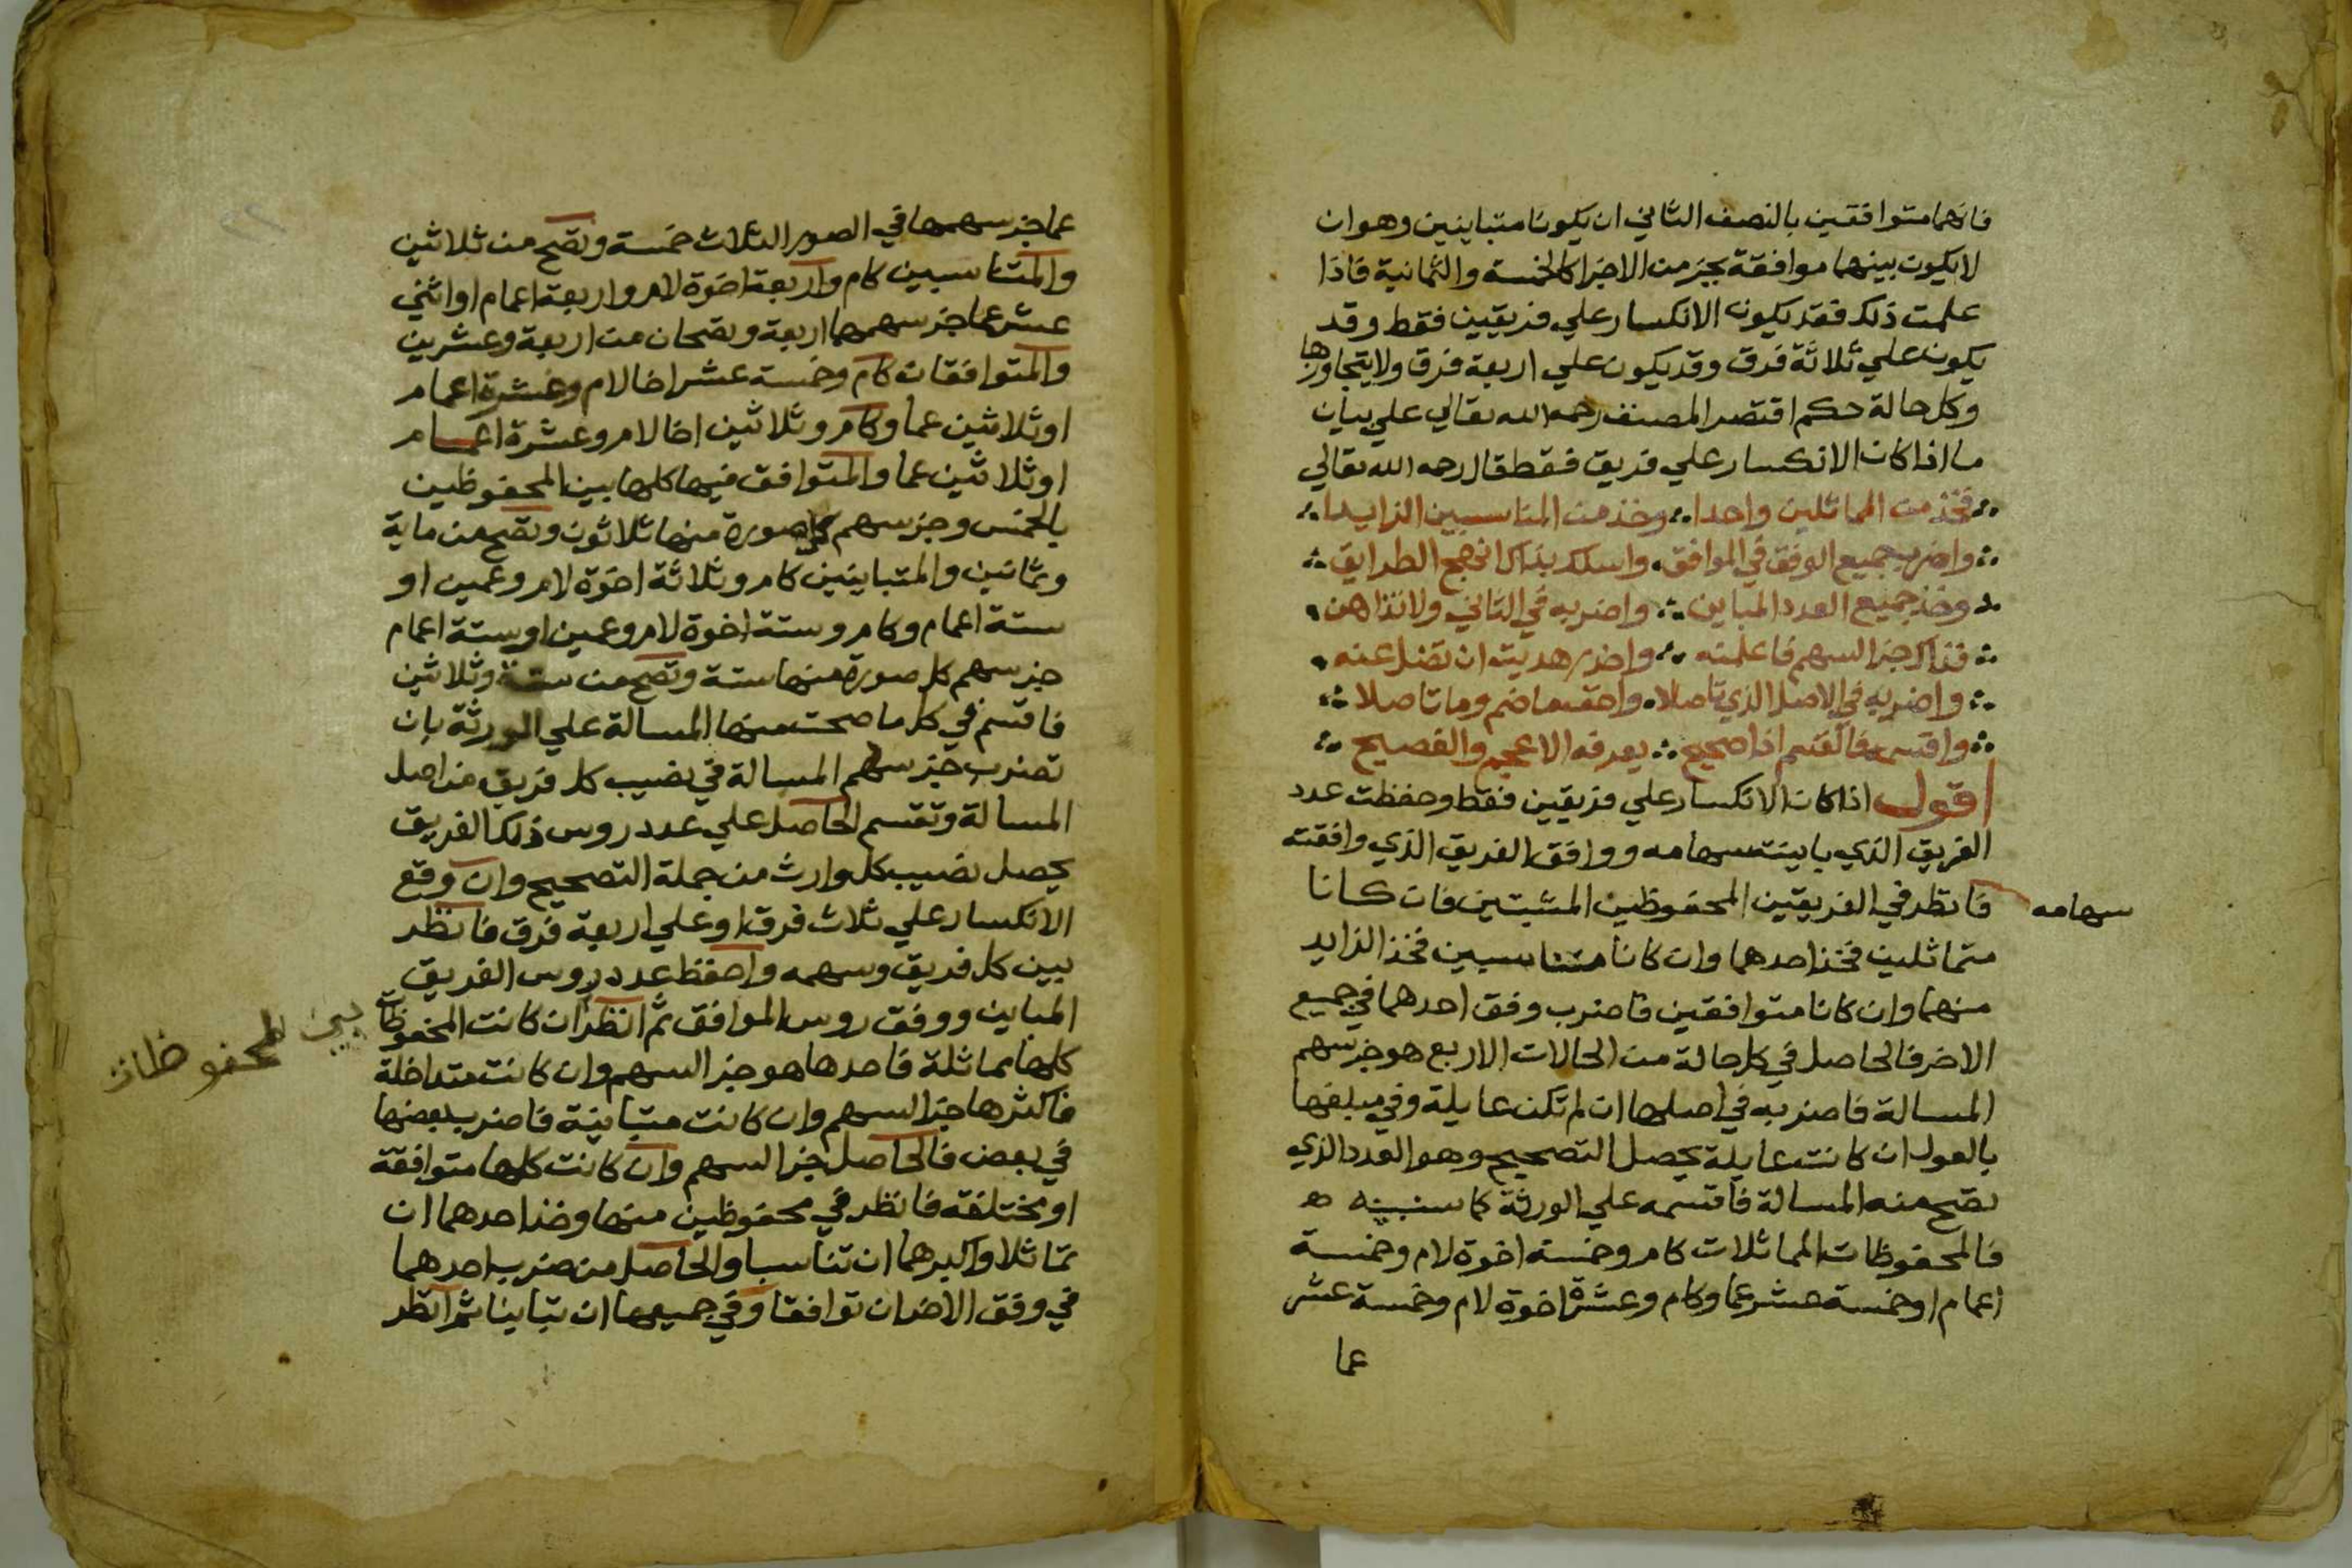 فانهما متوافقين بالنصف الثاني ان يكونا متباينين وهوان
لايكون بينهما موافقة بجزء من الاجزا كالخمسة والثمانية فاذا
علمت ذلك فقد يكون الانكسار علي فريقين فقط وقد
يكون علي ثلاثة فرق وقد يكون علي اربعة فرق ولايتجاوزها
وكل حالة حكم اقتصر المصنف رحمه الله تعالي علي بيان
ما اذا كان الانكسار علي فريق فقط قال رحمه الله تعالي
فخذ من المماثلين واحدا وخذ من المناسبين الزايدا
واضرب جميع الوفق في الموافق واسلك بذاك انهج الطرايق
وخذ جميع العدد المباين واضربه في الثاني ولاتداهن
فذاك جز السهم فاعلمنه واحذر هديت ان تضل عنه
واضربه في الاصل الذي تاصلا واحص ما ضم وما تاصلا
واقسمه فالقسم اذا صحيح يعرفه الاعجم والفصيح
اقول اذا كان الانكسار علي فريقين فقط وحفظت عدد
الفريق الذي باينته سهامه ووافق الفريق الذي وافقته
سهامه
فانظر في الفريقين المحفوظين المثبتين فان كانا
متماثلين فخذ احدهما وان كانا متناسبين فخذ الزايد
منهما وان كانا متوافقين فاضرب وفق احدهما في جميع
الاخر فالحاصل في كل حالة من الحالات الاربع هو جز سهم
المسالة فاضربه في اصلها ان لم تكن عايلة وفي مبلغها
بالعول ان كانت عايلة يحصل التصحيح وهو العدد الذي
تصح منه المسالة فاقسمه علي الورثة كما سنبينه ه
فالمحفوظات المماثلات كام وخمسة اخوة لام وخمسة
اعمام او خمسة عشر عما وكام وعشرة اخوة لام وخمسة عشر
عما
عما جز سهمها في الصور الثلاث خمسة وتصح من ثلاثين
والمتناسبين كام واربعة اخوة لام واربعة اعمام او اثني
عشر عما جز سهمهما اربعة وتصحان من اربعة وعشرين
والمتوافقات كام وخمسة عشر اخا لام وعشرة اعمام
او ثلاثين عما وكام وثلاثين اخا لام وعشرة اعمام
او ثلاثين عما والمتوافق فيها كلها بين المحفوظين
بالخمس وجز سهم كل صورة منها ثلاثون وتصح من ماية
وثمانين والمتباينين كام وثلاثة اخوة لام وعمين او
ستة اعمام وكام وستة اخوة لام وعمين او ستة اعمام
جز سهم كل صورة منها ستة وتصح من ستة وثلاثين
فاقسم في كل ما صحت منها المسالة علي الورثة بان
تضرب جز سهم المسالة في نصيب كل فريق من اصل
المسالة وتقسم الحاصل علي عدد روس ذلك الفريق
يحصل نصيب كل وارث من جملة التصحيح وان وقع
الانكسار علي ثلاث فرق او علي اربعة فرق فانظر
بين كل فريق وسهمه واحفظ عدد روس الفريق
المباين ووفق روس الموافق ثم انظر ان كانت المحفوظات
بين المحفوظات
كلها مماثلة فاحدها هو جز السهم وان كانت متداخلة
فاكثرها جز السهم وان كانت متباينة فاضرب بعضها
في بعض فالحاصل جز السهم وان كانت كلها متوافقة
او مختلفة فانظر في محفوظين منها وخذ احدهما ان
تماثلا واكبرهما ان تناسبا والحاصل من ضرب احدهما
في وفق الاخر ان توافقا وفي جميعها ان تباينا ثم انظر